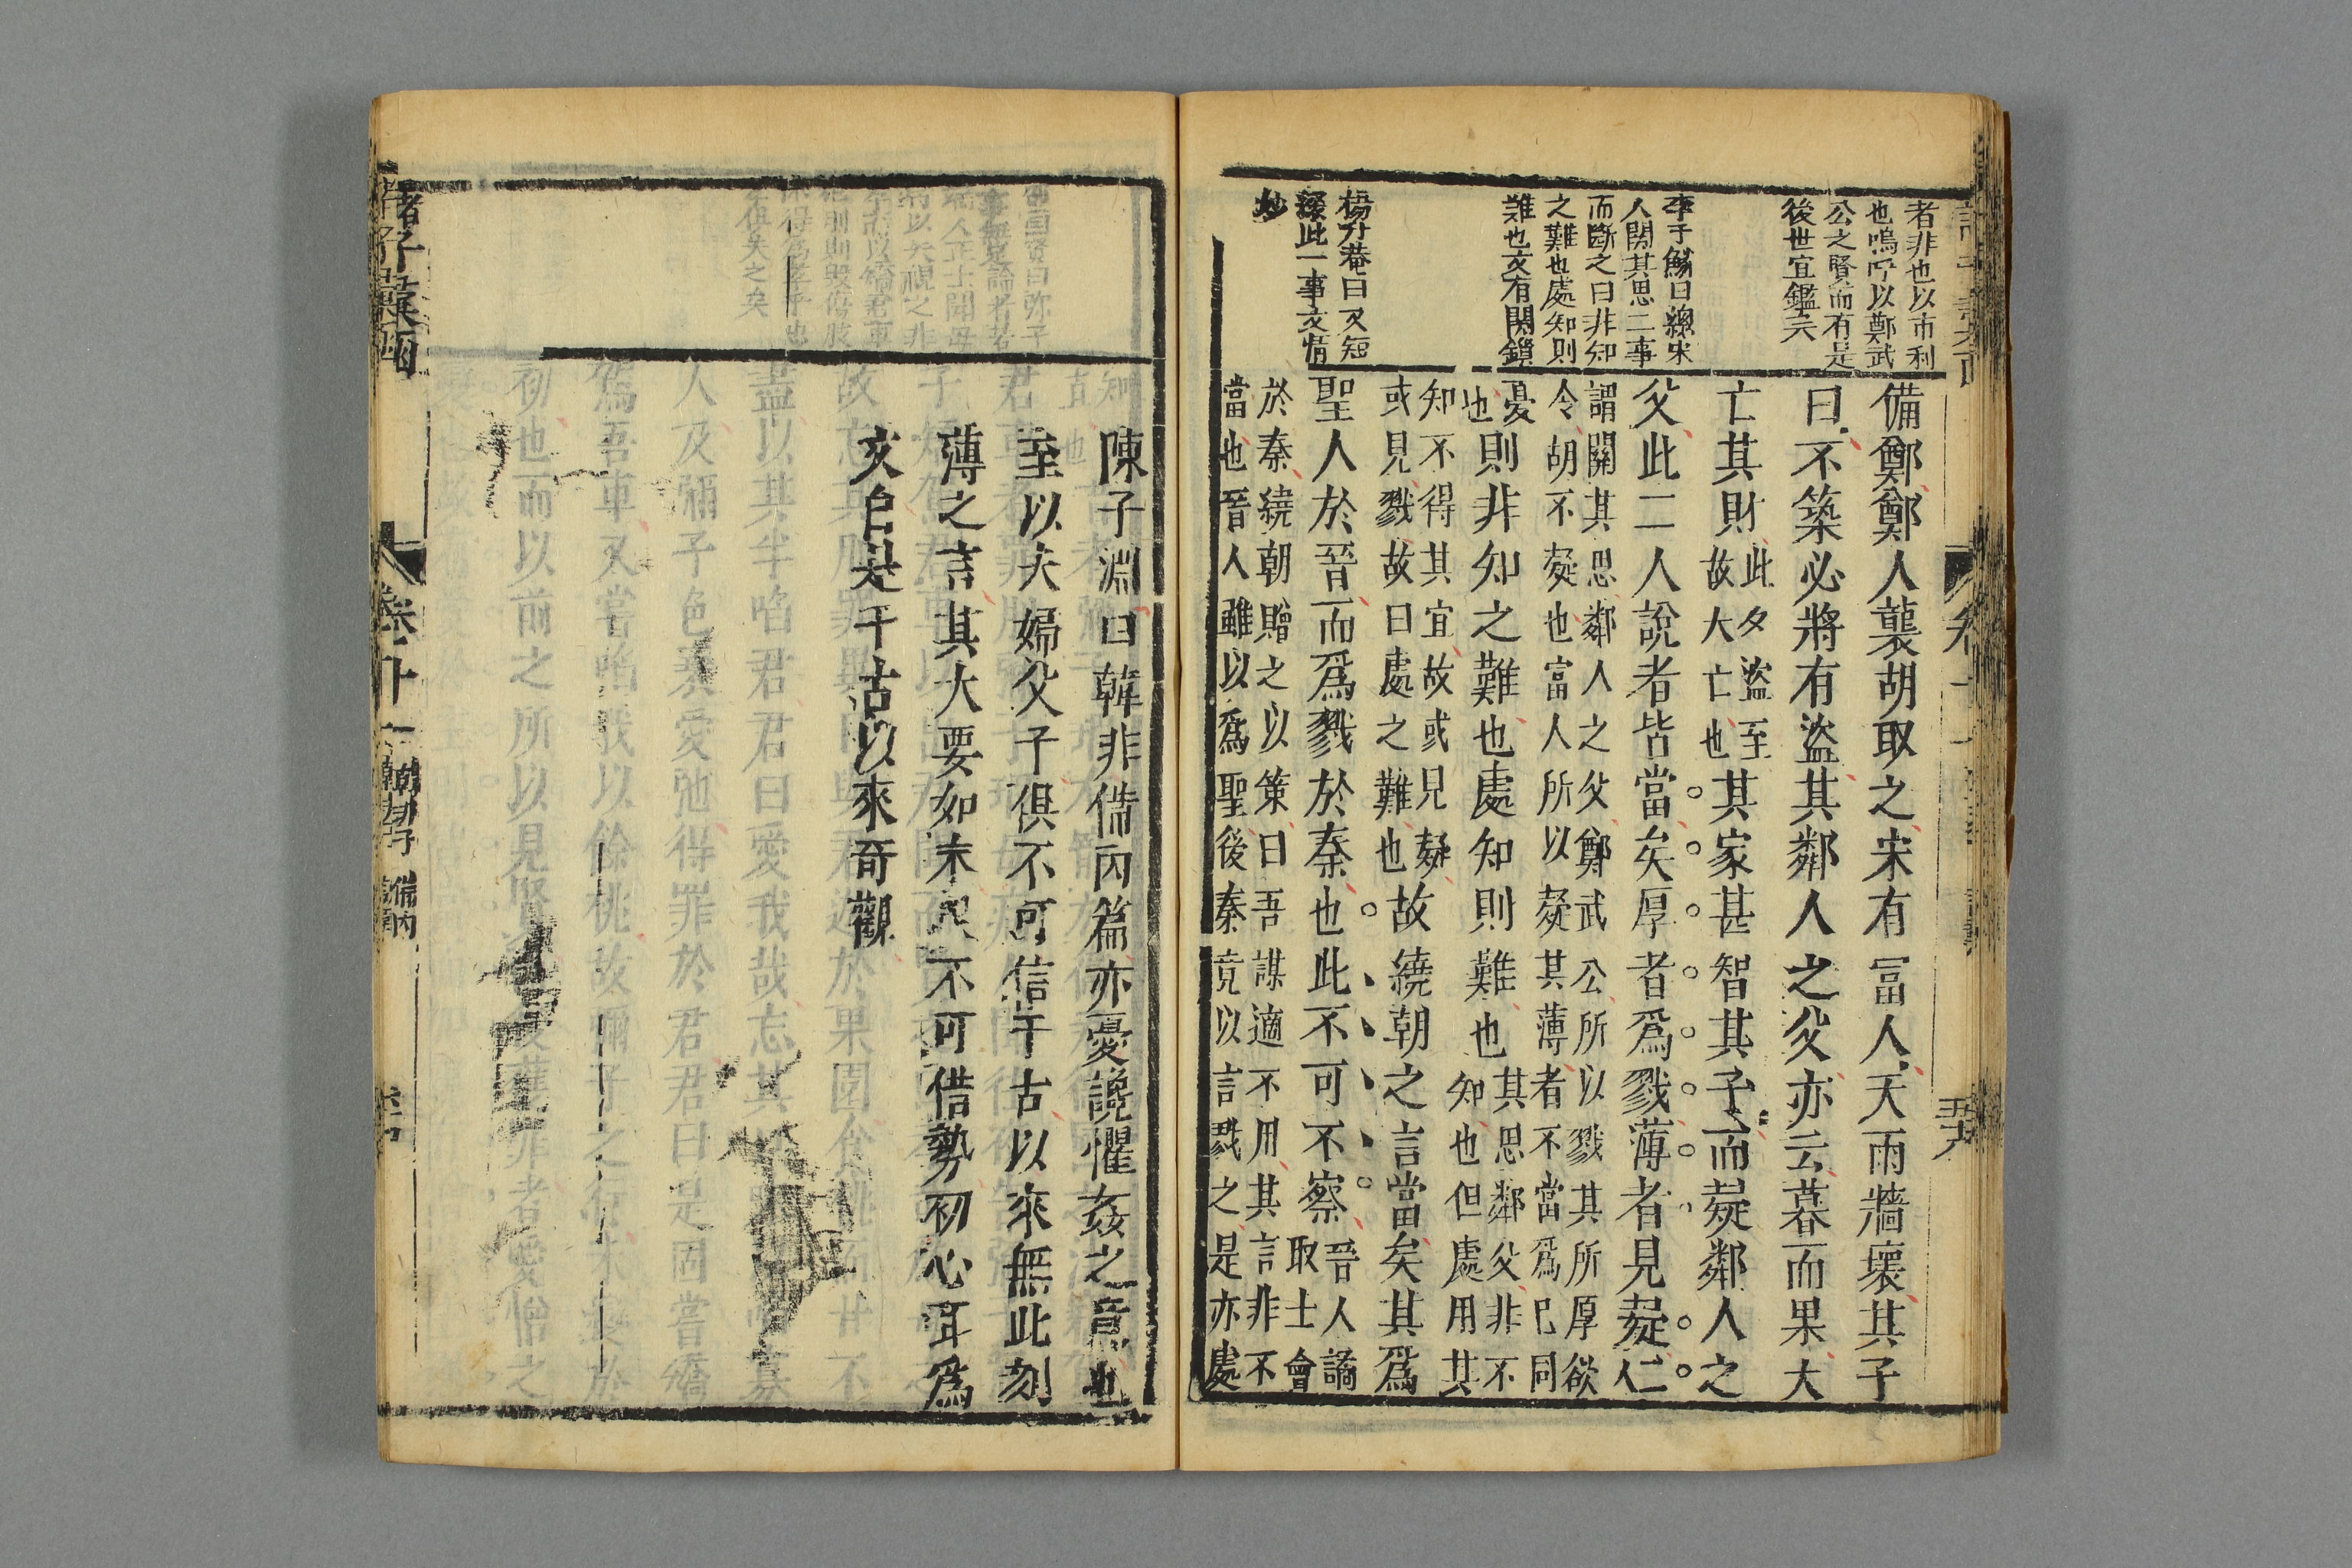 者非也以市利
也嗚呼以鄭武
公之賢而有是
後世宜鑑示
李于鱗曰總宋
人関其思二事
而斷之曰非知
之難也處知則
難也文有関鎖
楊升菴曰又短
綴此一事文情
妙
備鄭鄭人襲胡取之宋有冨人天雨牆壞其子
曰不築必將有盜其鄰人之父亦云暮而果大
亡其財此夕盜至故大亡也其家甚智其子而疑鄰人之
父此二人說者皆當矣厚者爲戮薄者見疑仁
謂關其思鄰人之父鄭武公所以戮其所厚欲
令胡不疑也富人所以疑其薄者不當爲巳同
憂也則非知之難也處知則難也其思鄰父非不知也但處用其
知不得其宜故或見疑
或見戮故曰處之難也故繞朝之言當矣其爲
聖人於晉而爲戮於秦也此不可不察晉人譎取士會
於秦繞朝贈之以策曰吾謀適不用其言非不
當也晉人雖以爲聖後秦竟以言戮之是亦處
陳子淵曰韓非備內篇亦憂讒懼姦之意也
至以夫婦父子俱不可信千古以來無此刻
薄之言其大要如末不可借勢初心耳爲
文自是千古以來奇觀
諸子彙函
卷十一
韓子
備內